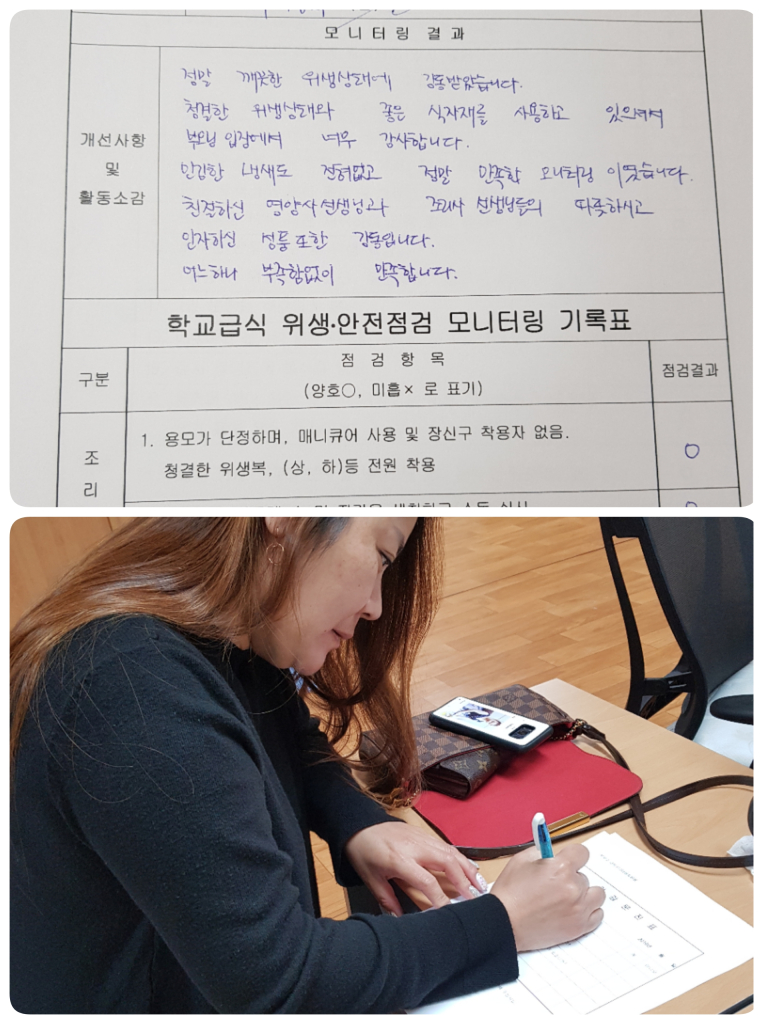 모니터링 결과
개선사항
및
활동소감
정말 깨끗한 위생상태에 감동받았습니다.
청결한 위생상태와 좋은 식자재를 사용하고 있으셔서
부모님 입장에서 너무 감사합니다.
안감한 냄새도 전혀없고 정말 만족한 모니터링 이였습니다.
친절하신 영양사선생님과 조리사 선생님들의 따뜻하시고
인자하신 성품 또한 감동입니다.
어느하나 부족함없이 만족합니다.
학교급식 위생·안전점검 모니터링 기록표
구분
점 검 항 목
(양호○, 미흡× 로 표기)
점검결과
조
리
1. 용모가 단정하며, 매니큐어 사용 및 장신구 착용자 없음.
청결한 위생복, (상, 하)등 전원 착용
○